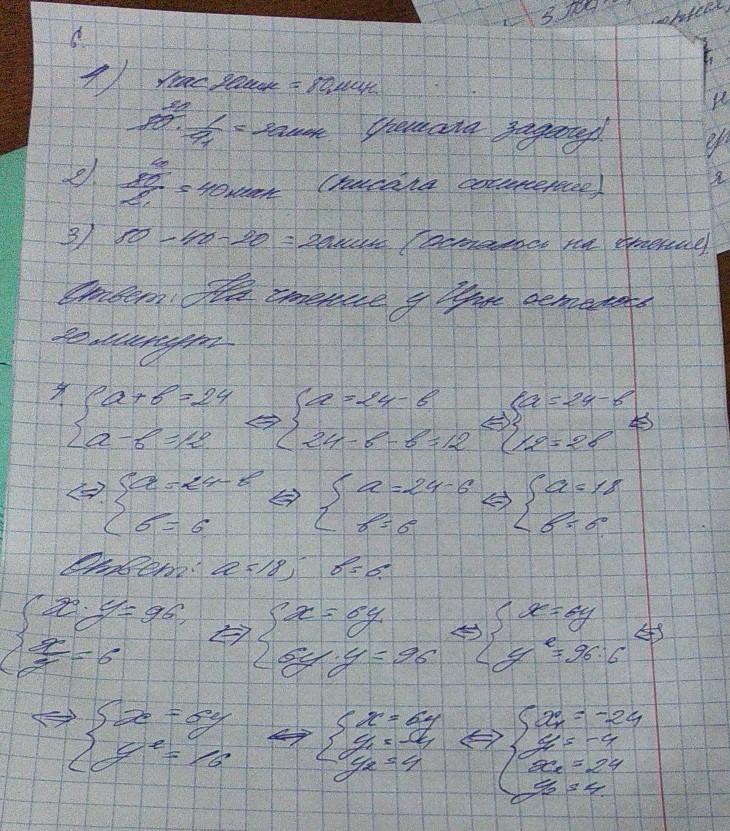 6.
1) 1час 20мин = 80мин.
80 20 · 1/4 1 = 20мин. (решала задачу).
2) 80 40 / 2 1 = 40мин (писала сочинение)
3) 80 - 40 - 20 = 20мин (осталось на чтение)
Ответ: На чтение у Иры осталось
20 минут
7. { a + b = 24 ; a - b = 12 ⇔ { a = 24 - b ; 24 - b - b = 12 ⇔ { a = 24 - b ; 12 = 2b ⇔
⇔ { a = 24 - b ; b = 6 ⇔ { a = 24 - 6 ; b = 6 ⇔ { a = 18 ; b = 6.
Ответ: a = 18; b = 6.
{ x · y = 96, ; x/y = 6 ⇔ { x = 6y ; 6y · y = 96 ⇔ { x = 6y ; y² = 96 : 6 ⇔
⇔ { x = 6y ; y² = 16 ⇔ { x = 6y ; y₁ = -4 ; y₂ = 4 ⇔ { x₁ = -24 ; y₁ = -4 ; x₂ = 24 ; y₂ = 4.